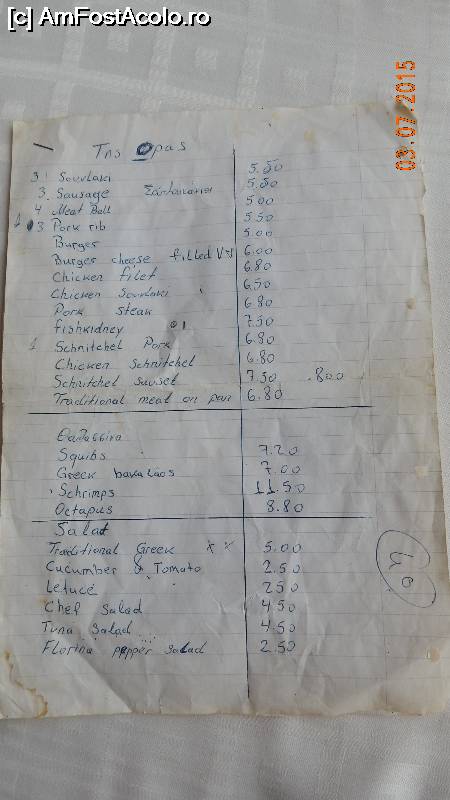 [c] AmFostAcolo.ro
03.07.2015
Της Ώρας
3 Souvlaki 5.50
3 Sausage 5.50
4 Meat Ball 5.00
1 3 Pork rib 5.50
Burger 5.00
Burger cheese filled 6.00
Chicken filet 6.80
Chicken Souvlaki 6.50
Pork steak 6.80
fishkidney 7.50
1 Schnitchel Pork 6.80
Chicken Schnitchel 6.80
Schnitchel sunset 7.50 .800
Traditional meat on pan 6.80
Θαλασσινα
Squibs 7.20
Greek bakaliaos 7.00
Schrimps 11.50
Octapus 8.80
Salat
Traditional Greek x x 5.00
Cucumber & Tomato 2.50
Letuce 250
Chef Salad 4.50
Tuna Salad 4.50
Florina pepper salad 2.50